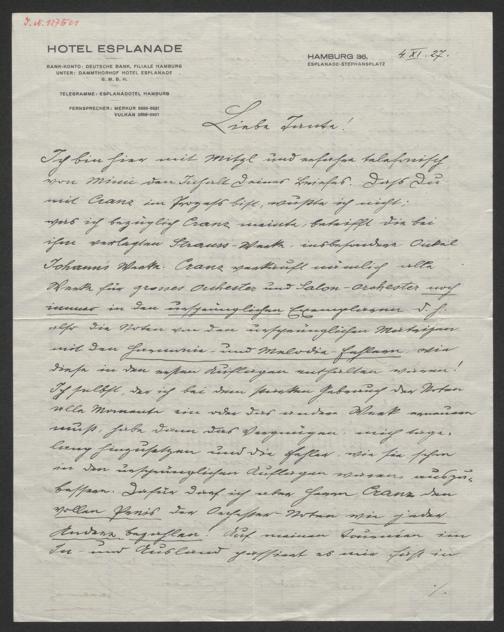 J.N. 127501
HOTEL ESPLANADE
BANK-KONTO: DEUTSCHE BANK, FILIALE HAMBURG
UNTER: DAMMTHORHOF HOTEL ESPLANADE
G. M. B. H.
TELEGRAMME: ESPLANADOTEL HAMBURG
FERNSPRECHER: MERKUR
VULKAN
HAMBURG 36, 4 XI. 27.
ESPLANADE-STEPHANSPLATZ
Liebe Tante!
Ich bin hier mit Mitzl und erfahre telefonisch
von Mimi den Inhalt Deines Briefes. Dass Du
mit Cranz im Prozess bist, wußte ich nicht;
was ich bezüglich Cranz meinte, betrifft die bei
ihm verlegten Strauss-Werke insbesondere Onkel
Johann's Werke. Cranz verkauft nämlich alle
Werke für grosses Orchester und Salon-Orchester noch
immer in den ursprünglichen Exemplaren d. h.
also die Noten von den ursprünglichen Matrizen
mit den Harmonie- und Melodie-Fehlern, wie
diese in den ersten Auflagen enthalten waren!
Ich selbst, der ich bei dem starken Gebrauch der Noten
alle Momente ein oder das andere Werk erneuern
muß, habe dann das Vergnügen mich tage-
lang hinzusetzen und die Fehler, wie sie schon
in den ursprünglichen Auflagen waren, auszu-
bessern. Dafür darf ich aber Herrn Cranz den
vollen Preis der Orchester-Noten wie jeder
Andere bezahlen! Auf meinen Tourneen im
In- und Ausland passiert es mir fast in
./.